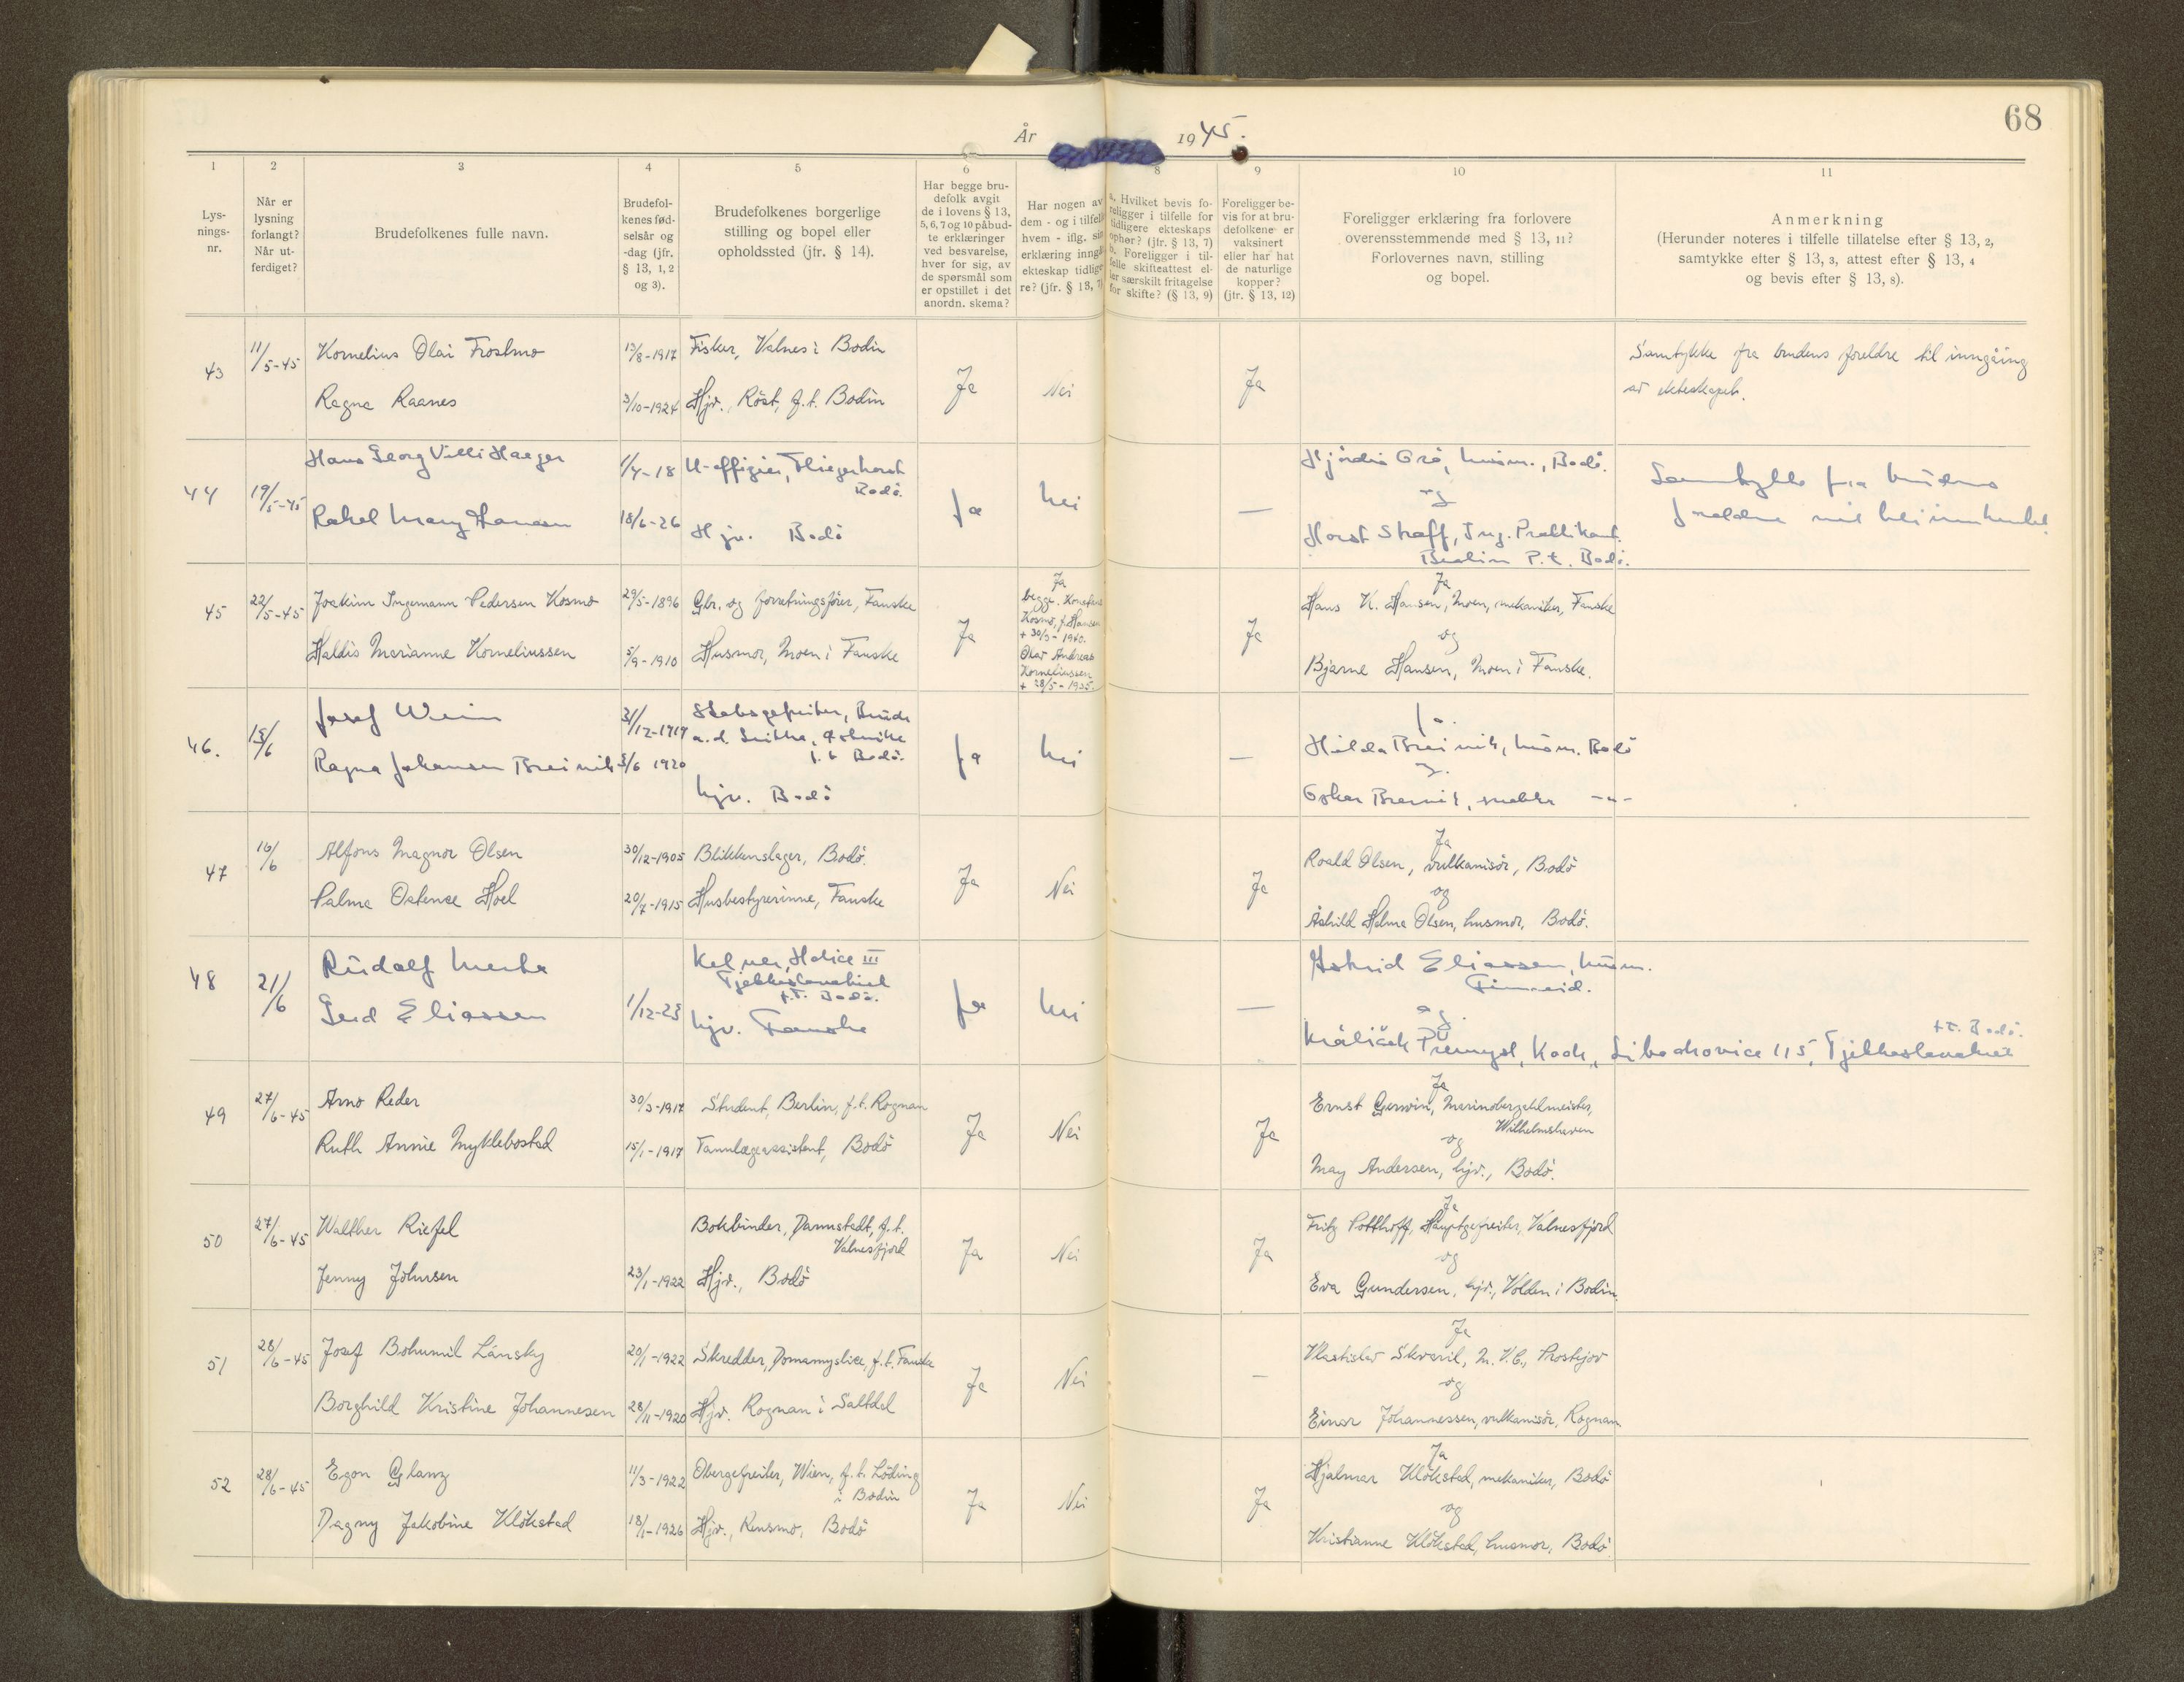 68
År 1945.
1 2 3 4 5 6 8 9 10 11
Lys-
nings-
nr.
Når er
lysning
forlangt?
Når ut-
ferdiget?
Brudefolkenes fulle navn.
Brudefol-
kenes fød-
selsår og
-dag (jfr.
§ 13, 1, 2
og 3).
Brudefolkenes borgerlige
stilling og bopel eller
opholdssted (jfr. § 14).
Har begge bru-
defolk avgit
de i lovens § 13,
5, 6, 7 og 10 påbud-
te erklæringer
ved besvarelse,
hver for sig, av
de spørsmål som
er opstillet i det
anordn. skema?
Har nogen av
dem - og i tilfelle
hvem - iflg. sin
erklæring inngåt
ekteskap tidlige-
re? (jfr. § 13, 7)
a. Hvilket bevis fo-
religger i tilfelle for
tidligere ekteskaps
ophør? (jfr. § 13, 7)
b. Foreligger i til-
felle skifteattest el-
ler særskilt fritagelse
for skifte? (§ 13, 9)
Foreligger be-
vis for at bru-
defolkene er
vaksinert
eller har hat
de naturlige
kopper?
(jfr. § 13, 12)
Foreligger erklæring fra forlovere
overensstemmende med § 13, 11?
Forlovernes navn, stilling
og bopel.
Anmerkning
(Herunder noteres i tilfelle tillatelse efter § 13, 2,
samtykke efter § 13, 3, attest efter § 13, 4
og bevis efter § 13, 8).
43 11/5-45 Kornelius Olai Frostmo 13/8-1917 Fisker, Valnes i Bodin
Ragna Raanes 3/10-1924 Hjv., Röst, f.t. Bodin
Ja Nei Ja
Samtykke fra brudens foreldre til inngåing
av ekteskapet.
44 19/5-45 Hans Georg Villi Haeger 1/4-18 U-offizier, Fliegerhorst
Bodö.
Rakel Mary Hansen 18/6-26 Hjv. Bodö
Ja Nei —
Hjördis Grö, husm., Bodö.
og
Horst Straff, Ing. Praktikant.
Berlin P.t. Bodö.
Samtykke fra brudens
foreldre vil bli innhentet.
45 22/5-45 Joakim Ingemann Pedersen Kosmo 29/5-1896 Gbr. og forretningsfører, Fauske
Haldis Marianne Korneliussen 5/9-1910 Husmor, Moen i Fauske
Ja
Ja
begge.
Kosmo, f. Hansen
+ 30/3-1940.
Olav Andreas
Korneliussen
+ 28/5-1935.
Ja
Ja
Hans K. Hansen, Moen, mekaniker, Fauske
og
Bjarne Hansen, Moen i Fauske.
46. 15/6 Josef 31/12-1917 Stabsgefreiter,
a.d.
f.t. Bodö.
Ragna Johansen Breivik 3/6 1920
hjv. Bodö
Ja Nei —
Ja.
Hilda Breivik, husm. Bodö
og.
Oskar Breivik, snekker —"—
47 16/6 Alfons Magnor Olsen 30/12-1905 Blikkenslager, Bodö.
Palma Ostense Hoel 20/7-1915 Husbestyrerinne, Fauske
Ja Nei Ja
Ja
Roald Olsen, vulkanisör, Bodö
og
Åshild Helma Olsen, husmor, Bodö.
48 21/6 Rudolf Kelner, Holice III
Tjekkoslovakiet
f.T. Bodö.
Gerd Eliassen 1/12-23 hjv. Fauske
Ja Nei —
Astrid Eliassen, husm.
Finneid.
og.
Králiček Přemysl, Kock, Libochovice 115, Tjekkoslovakiet
f.T. Bodö.
49 27/6-45 Arno Reder 30/3-1917 Student, Berlin, f.t. Rognan
Ruth Annie Myklebostad 15/1-1917 Tannlægeassistent, Bodö
Ja Nei Ja
Ja
Ernst Gerwin, Marineoberzahlmeister,
Wilhelmshaven
og
May Andersen, hjv., Bodö.
50 27/6-45 Walther Riefel Bokbinder, Darmstadt, f.t.
Valnesfjord
Jenny Johnsen 23/1-1922 Hjv., Bodö
Ja Nei Ja
Ja
Fritz Potthoff, Hauptgefreiter, Valnesfjord
og
Eva Gundersen, hjv., Volden i Bodin.
51 28/6-45 Josef Bohumil Lánsky 20/1-1922 Skredder, Domamyslice, f.t. Fauske
Borghild Kristine Johannesen 28/11-1920 Hjv. Rognan i Saltdal
Ja Nei —
Ja
Vlastislav Skvaril, M.V.C., Prostejov
og
Einar Johannessen, vulkanisör, Rognan
52 28/6-45 Egon Glanz 11/3-1922 Obergefreiter, Wien, f.t. Löding
i Bodin
Dagny Jakobine Klökstad 18/1-1926 Hjv., Rensmo, Bodö
Ja Nei Ja
Ja
Hjalmar Klökstad, mekaniker, Bodö
og
Kristianne Klökstad, husmor, Bodö.